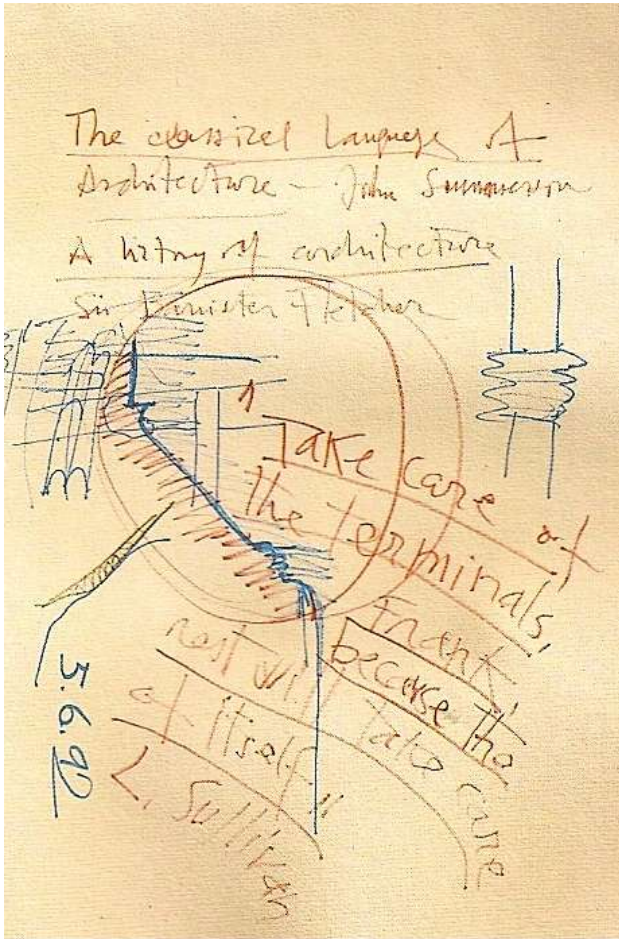 The classical Language of
Architecture - John Summerson
A history of architecture
Sir Banister Fletcher
"Take care of
the terminals,
Frank,
because the
rest will take care
of itself"
L. Sullivan
5.6.92